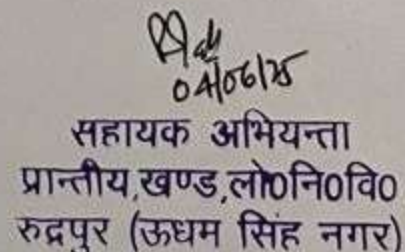 04/06/25
सहायक अभियन्ता
प्रान्तीय,खण्ड,लो0नि0वि0
रुद्रपुर (ऊधम सिंह नगर)